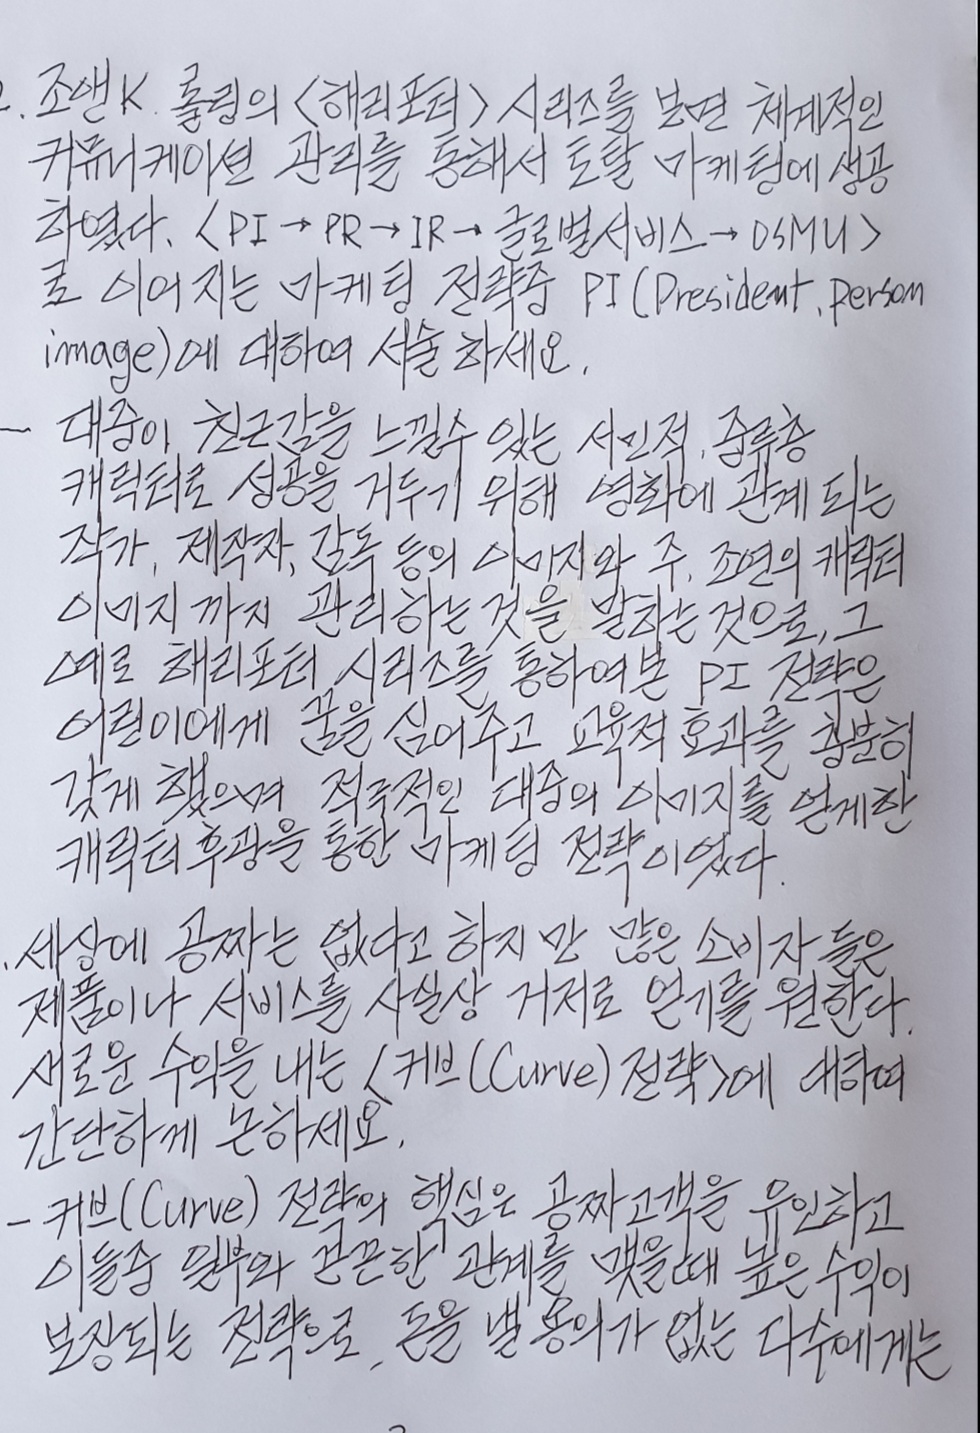 2. 조앤K. 롤링의 <해리포터> 시리즈를 보면 체계적인
커뮤니케이션 관리를 통해서 토탈 마케팅에 성공
하였다. <PI→PR→IR→글로벌서비스→OSMU>
로 이어지는 마케팅 전략중 PI(President, person
image)에 대하여 서술하세요.
- 대중이 친근감을 느낄수 있는 서민적, 중류층
캐릭터로 성공을 거두기 위해 영화에 관계되는
작가, 제작자, 감독 등의 이미지와 주, 조연의 캐릭터
이미지까지 관리하는것을 말하는것으로, 그
예로 해리포터 시리즈를 통하여본 PI 전략은
어린이에게 꿈을 심어주고 교육적 효과를 충분히
갖게 했으며 적극적인 대중의 이미지를 얻게한
캐릭터후광을 통한 마케팅 전략이였다.
. 세상에 공짜는 없다고 하지만 많은 소비자들은
제품이나 서비스를 사실상 거저로 얻기를 원한다.
새로운 수익을 내는 <커브(Curve)전략>에 대하여
간단하게 논하세요.
- 커브(Curve) 전략의 핵심은 공짜고객을 유인하고
이들중 일부와 끈끈한 관계를 맺을때 높은수익이
보장되는 전략으로, 돈을 낼 용의가 없는 다수에게는